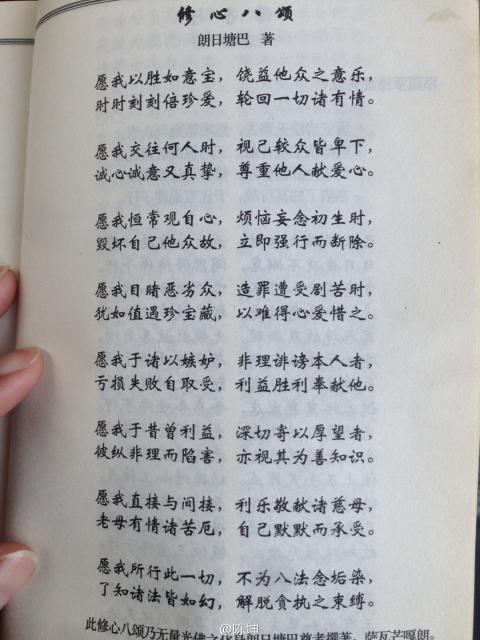 修心八颂
朗日塘巴 著
愿我以胜如意宝，饶益他众之意乐，
时时刻刻倍珍爱，轮回一切诸有情。
愿我交往何人时，视己较众皆卑下，
诚心诚意又真挚，尊重他人献爱心。
愿我恒常观自心，烦恼妄念初生时，
毁坏自己他众故，立即强行而断除。
愿我目睹恶劣众，造罪遭受剧苦时，
犹如值遇珍宝藏，以难得心爱惜之。
愿我于诸以嫉妒，非理诽谤本人者，
亏损失败自取受，利益胜利奉献他。
愿我于昔曾利益，深切寄以厚望者，
彼纵非理而陷害，亦视其为善知识。
愿我直接与间接，利乐敬献诸慈母，
老母有情诸苦厄，自己默默而承受。
愿我所行此一切，不为八法念垢染，
了知诸法皆如幻，解脱贪执之束缚。
此修心八颂乃无量光佛之化身朗日塘巴尊者撰著。萨瓦芒嘎朗。
@陈坤